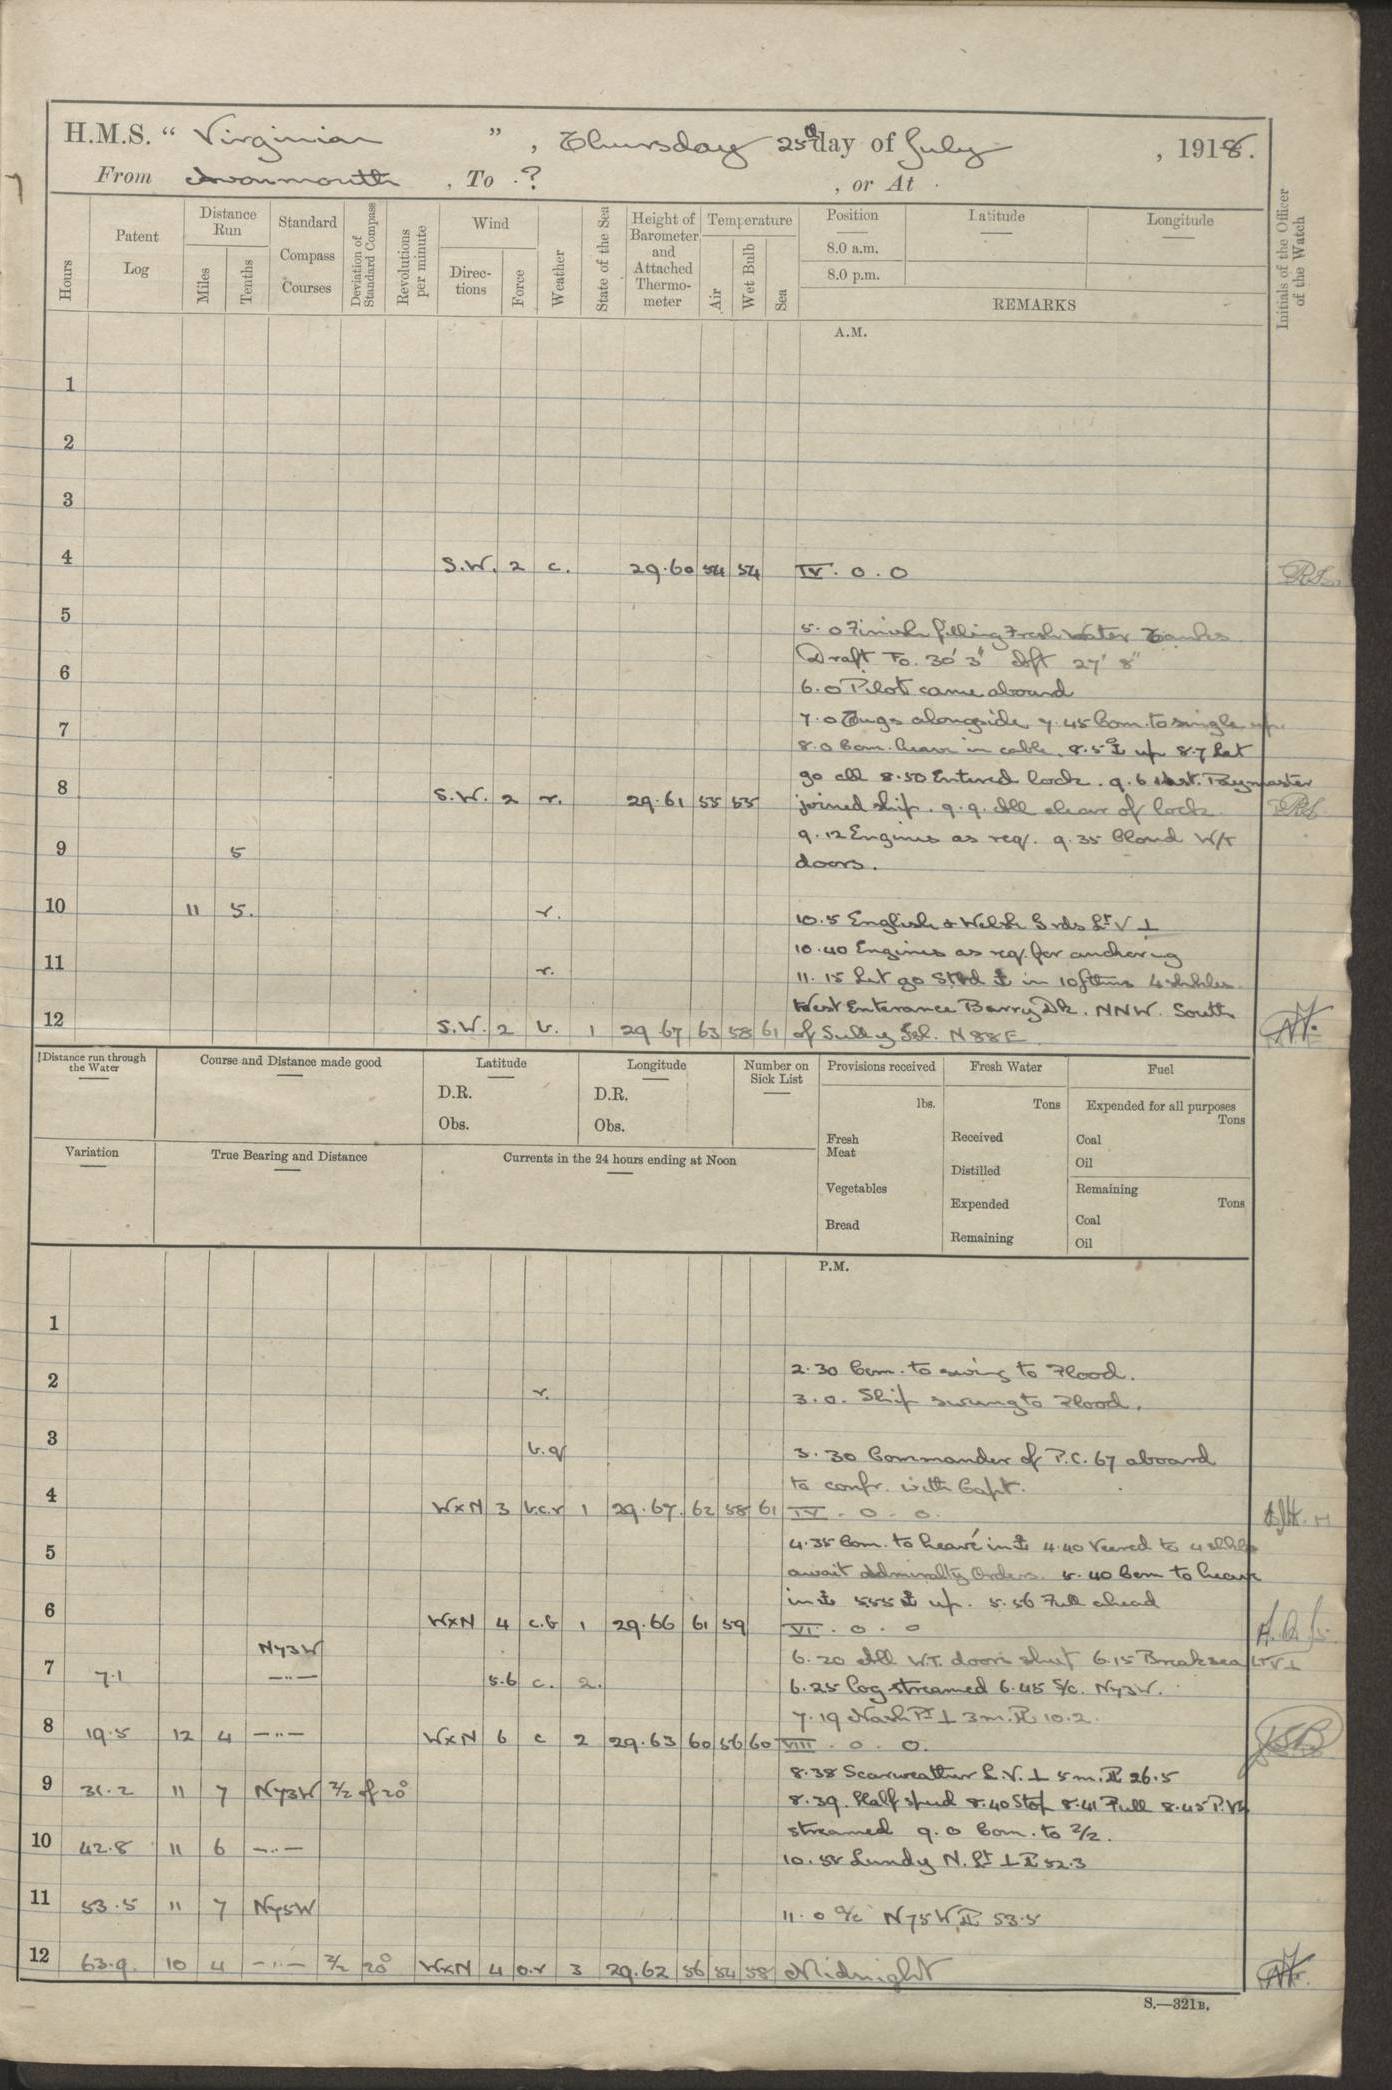 H.M.S. " Virginian " , Thursday 25th day of July , 1918.
From Avonmouth , To ? , or At
Hours
Patent Log
Distance Run
Miles
Tenths
Standard Compass Courses
Deviation of Standard Compass
Revolutions per minute
Wind
Directions
Force
Weather
State of the Sea
Height of Barometer and Attached Thermometer
Temperature
Air
Wet Bulb
Sea
Position
8.0 a.m.
8.0 p.m.
Latitude
Longitude
REMARKS
Initials of the Officer of the Watch
A.M.
1
2
3
4 S.W. 2 c. 29.60 54 54 IV. 0. 0
5
5.0 Finish filling Fresh Water Tanks
Draft Fo. 30' 3" Aft 27' 8"
6
6.0 Pilot came aboard
7
7.0 Tugs alongside 7.45 Com. to single up.
8.0 Com. heave in cable. 8.5 ⚓ up 8.7 Let
go all 8.50 Entered lock. 9.6 Asst. Paymaster
8 S.W. 2 r. 29.61 55 55 joined ship. 9.9. All clear of lock
9.12 Engines as req. 9.35 Closed W/T
9 5
doors.
10 11 5. r.
10.5 English & Welsh Grds Lt V ⊥
10.40 Engines as req. for anchoring
11 r.
11.15 Let go Stbd ⚓ in 10 fthms 4 shkles
West Enterance Barry Dk. NNW. South
12 S.W. 2 b. 1 29 67 63 58 61 of Sully Isl. N88E
Distance run through the Water
Course and Distance made good
Latitude
D.R.
Obs.
Longitude
D.R.
Obs.
Number on Sick List
Provisions received
lbs.
Fresh Meat
Vegetables
Bread
Fresh Water
Tons
Received
Distilled
Expended
Remaining
Fuel
Expended for all purposes
Tons
Coal
Oil
Remaining
Tons
Coal
Oil
Variation
True Bearing and Distance
Currents in the 24 hours ending at Noon
P.M.
1
2.30 Com. to swing to Flood.
2 r.
3.0. Ship swung to Flood.
3 b.q
3.30 Commander of P.C. 67 aboard
to confr. with Capt.
4 WxN 3 b.c.r 1 29.67. 62 58 61 IV. 0. 0.
4.35 Com. to heave in ⚓ 4.40 Veered to 4 shkls
5
await Admiralty Orders. 5.40 Com to heave
in ⚓ 555 ⚓ up. 5.56 Full ahead
6 WxN 4 c.b 1 29.66 61 59 VI. 0. 0
N73W
6.20 All W.T. doors shut 6.15 Breaksea LTV⊥
7 7.1 —"— 5.6 c. 2.
6.25 Log streamed 6.45 S/c. N73W.
7.19 Nash Pt ⊥ 3 m. PL 10.2.
8 19.5 12 4 —"— WxN 6 c 2 29.63 60 56 60 VIII. 0. 0.
8.38 Scarweather L.V. ⊥ 5 m. PL 26.5
9 31.2 11 7 N73W Z/Z of 20°
8.39. Half speed 8.40 Stop 8.41 Full 8.45 P.Vs
streamed 9.0 Com. to Z/Z.
10 42.8 11 6 —"—
10.55 Lundy N. Lt ⊥ PL 52.3
11 53.5 11 7 N75W
11.0 a/c N75W PL 53.5
12 63.9. 10 4 —"— Z/Z 20° WxN 4 o.r 3 29.62 56 54 58 Midnight
S.—321B.